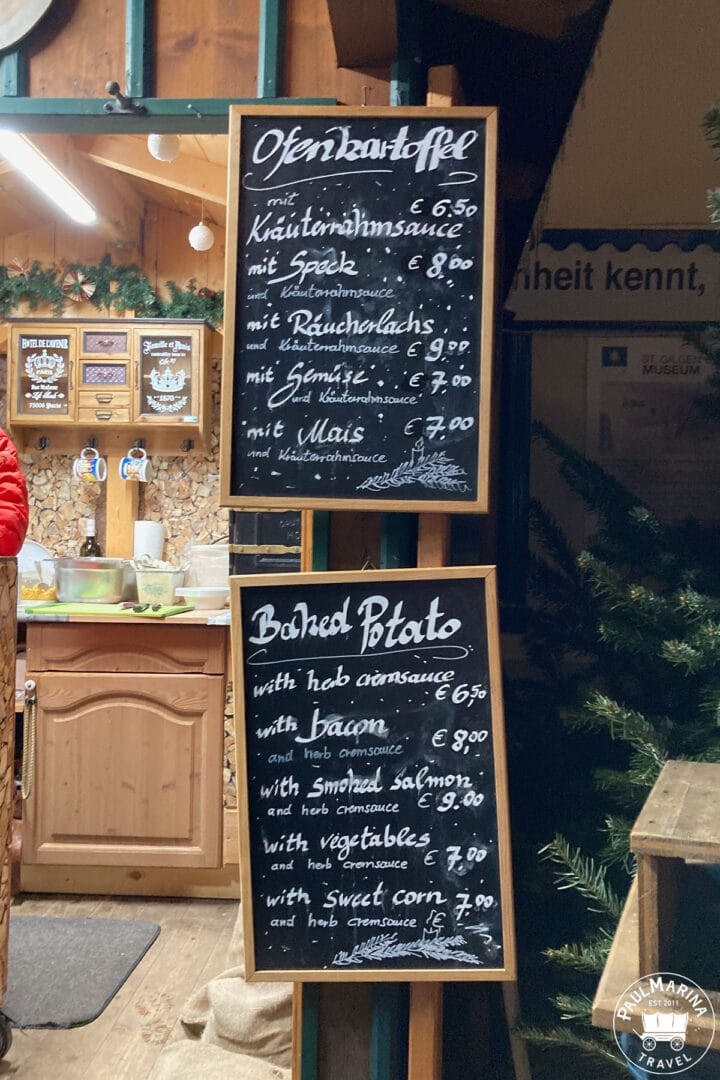 Ofenkartoffel
mit € 6.50
Kräuterrahmsauce
mit Speck € 8,00
und Kräuterrahmsauce
mit Räucherlachs
und Kräuterrahmsauce € 9,00
mit Gemüse € 7,00
und Kräuterrahmsauce
mit Mais € 7,00
und Kräuterrahmsauce
Baked Potato
with herb cremsauce
€ 6,50
with bacon € 8,00
and herb cremsauce
with smoked salmon
and herb cremsauce € 9.00
with vegetables
and herb cremsauce € 7,00
with sweet corn 7,00
and herb cremsauce €
HOTEL DE L'AVENIR
PARIS
75006 Paris
Famille et Amis
1870
nheit kennt,
ST. GILGEN
MUSEUM
PAULMARINA
EST 2011
TRAVEL